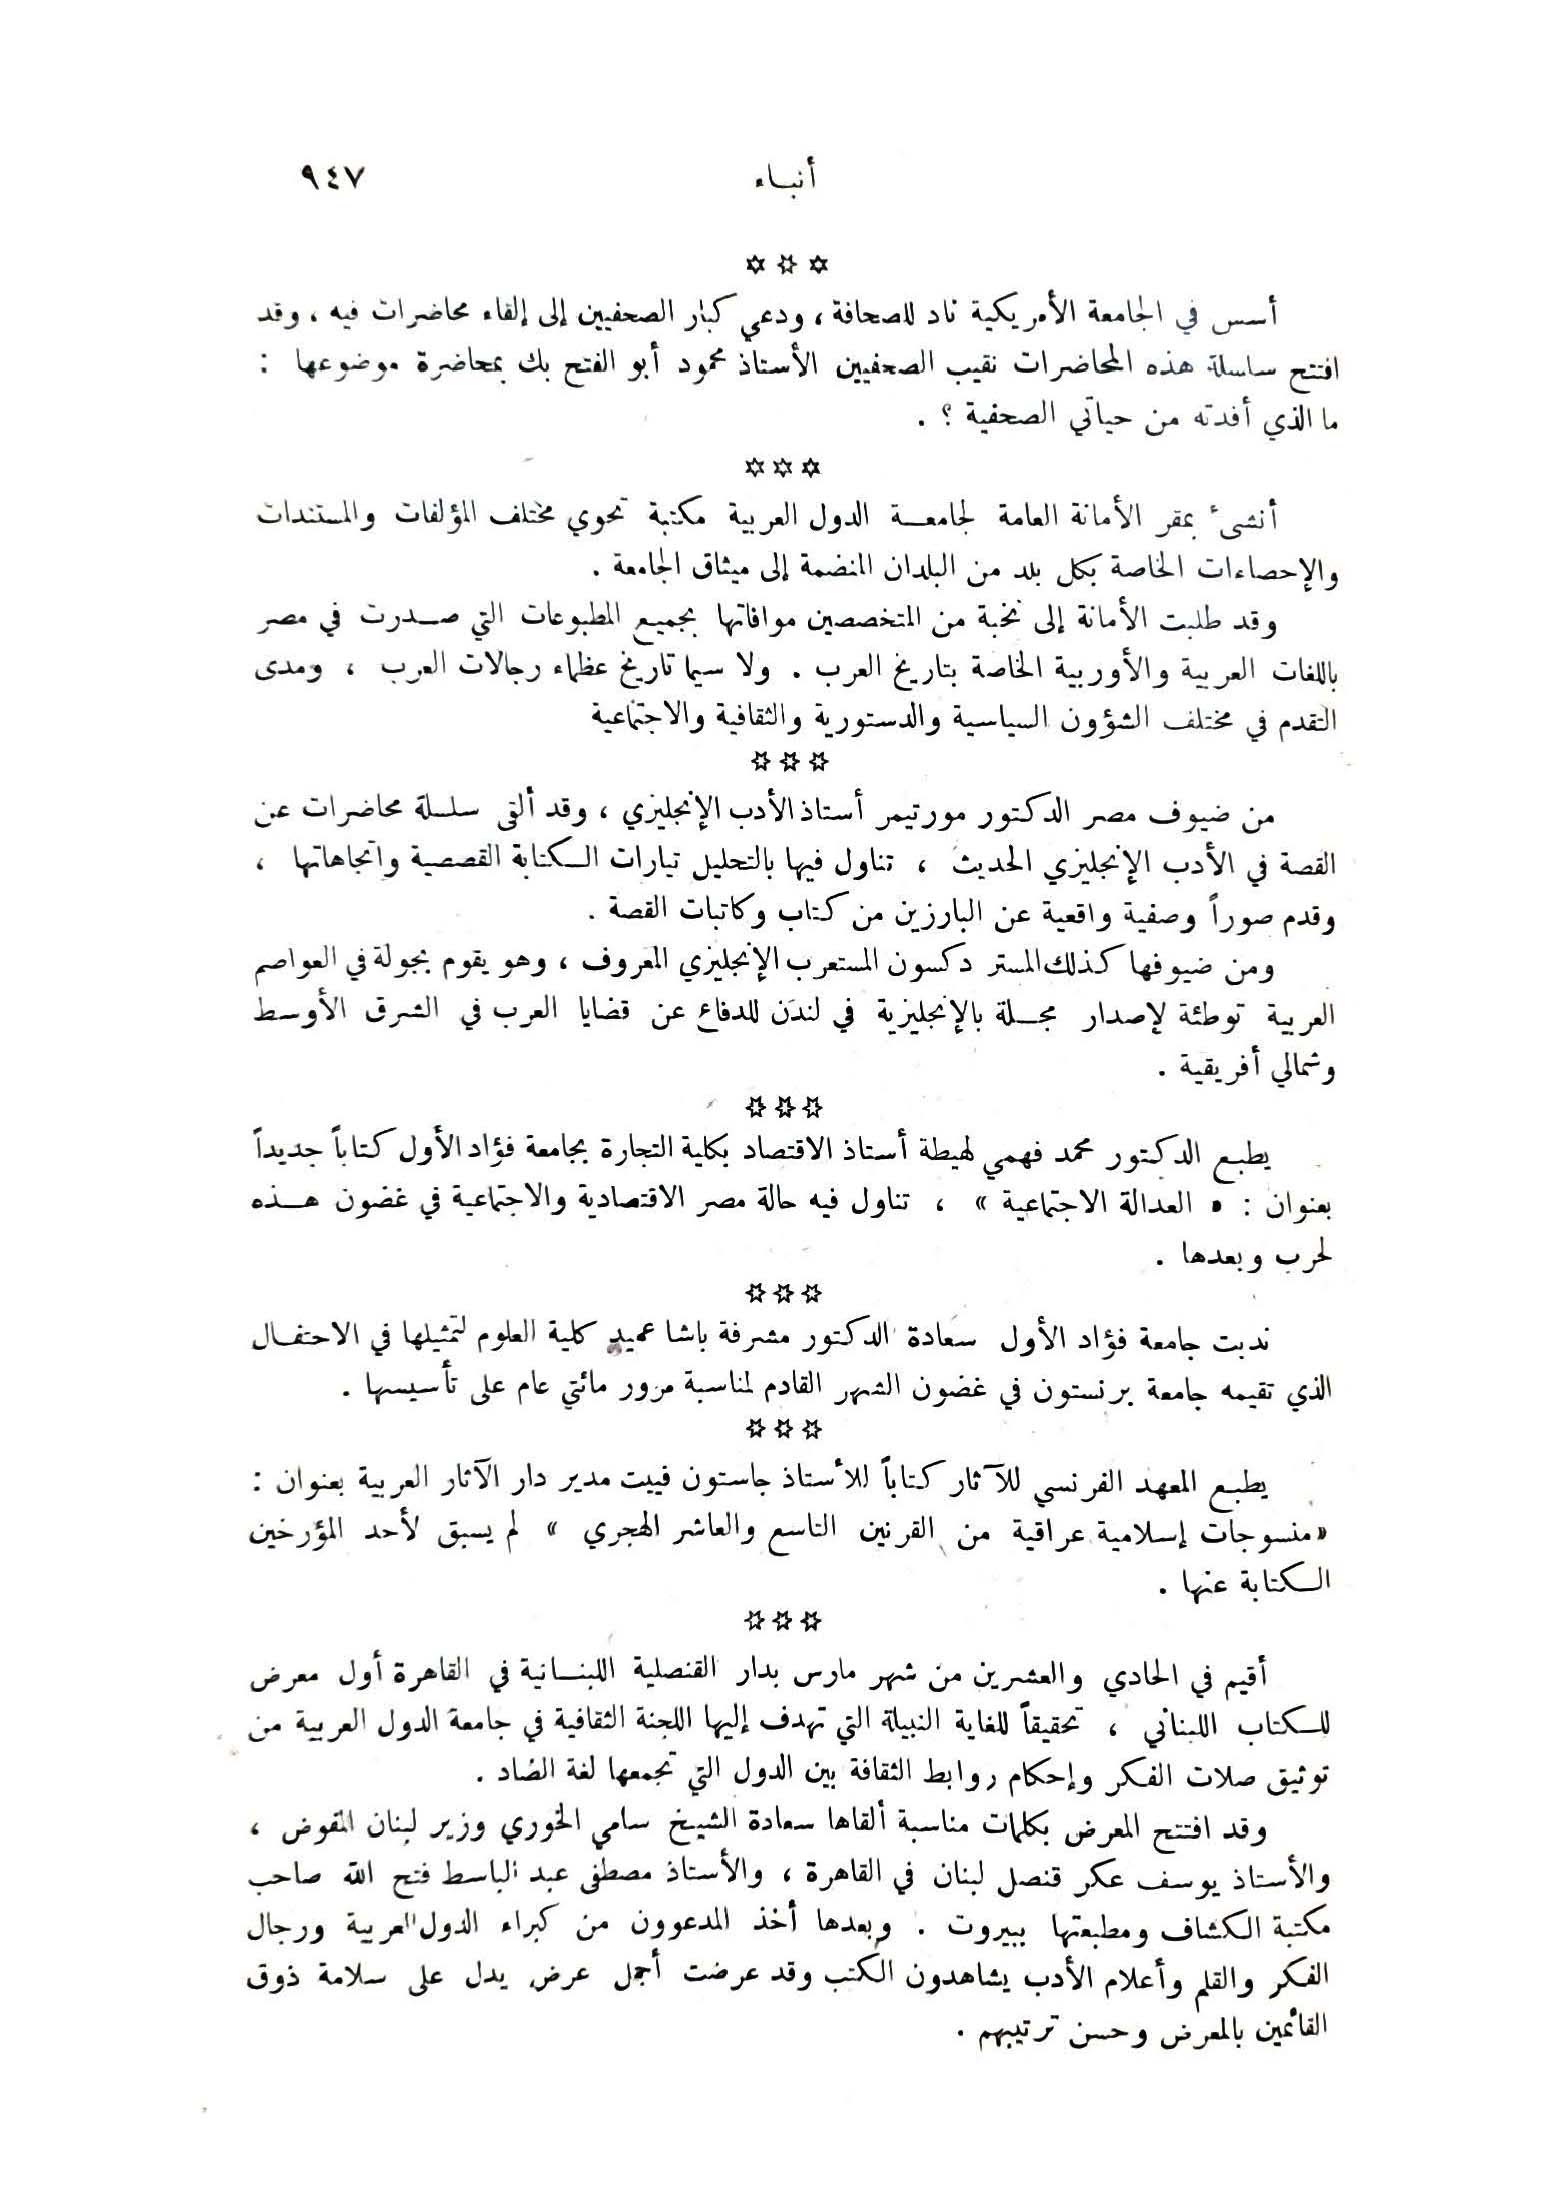 أنباء ٩٤٧
✡ ✡ ✡
أسس في الجامعة الأمريكية ناد للصحافة ، ودعي كبار الصحفيين إلى إلقاء محاضرات فيه ، وقد
افتتح سلسلة هذه المحاضرات نقيب الصحفيين الأستاذ محمود أبو الفتح بك بمحاضرة موضوعها :
ما الذي أفدته من حياتي الصحفية ؟ .
✡ ✡ ✡
أنشىء بمقر الأمانة العامة لجامعة الدول العربية مكتبة تحوي مختلف المؤلفات والمستندات
والإحصاءات الخاصة بكل بلد من البلدان المنضمة إلى ميثاق الجامعة .
وقد طلبت الأمانة إلى نخبة من المتخصصين موافاتها بجميع المطبوعات التي صدرت في مصر
باللغات العربية والأوربية الخاصة بتاريخ العرب . ولا سيما تاريخ عظماء رجالات العرب ، ومدى
التقدم في مختلف الشؤون السياسية والدستورية والثقافية والاجتماعية
✡ ✡ ✡
من ضيوف مصر الدكتور مورتيمر أستاذ الأدب الإنجليزي ، وقد ألقى سلسلة محاضرات عن
القصة في الأدب الإنجليزي الحديث ، تناول فيها بالتحليل تيارات الكتابة القصصية واتجاهاتها ،
وقدم صوراً وصفية واقعية عن البارزين من كتاب وكاتبات القصة .
ومن ضيوفها كذلك المستر دكسون المستعرب الإنجليزي المعروف ، وهو يقوم بجولة في العواصم
العربية توطئة لإصدار مجلة بالإنجليزية في لندن للدفاع عن قضايا العرب في الشرق الأوسط
وشمالي أفريقية .
✡ ✡ ✡
يطبع الدكتور محمد فهمي لهيطة أستاذ الاقتصاد بكلية التجارة بجامعة فؤاد الأول كتاباً جديداً
بعنوان : « العدالة الاجتماعية » ، تناول فيه حالة مصر الاقتصادية والاجتماعية في غضون هذه
لحرب وبعدها .
✡ ✡ ✡
ندبت جامعة فؤاد الأول سعادة الدكتور مشرفة باشا عميد كلية العلوم لتمثيلها في الاحتفال
الذي تقيمه جامعة برنستون في غضون الشهر القادم لمناسبة مرور مائتي عام على تأسيسها .
✡ ✡ ✡
يطبع المعهد الفرنسي للآثار كتاباً للأستاذ جاستون فييت مدير دار الآثار العربية بعنوان :
«منسوجات إسلامية عراقية من القرنين التاسع والعاشر الهجري » لم يسبق لأحد المؤرخين
الكتابة عنها .
✡ ✡ ✡
أقيم في الحادي والعشرين من شهر مارس بدار القنصلية اللبنانية في القاهرة أول معرض
للكتاب اللبناني ، تحقيقاً للغاية النبيلة التي تهدف إليها اللجنة الثقافية في جامعة الدول العربية من
توثيق صلات الفكر وإحكام روابط الثقافة بين الدول التي تجمعها لغة الضاد .
وقد افتتح المعرض بكلمات مناسبة ألقاها سعادة الشيخ سامي الخوري وزير لبنان المفوض ،
والأستاذ يوسف عكر قنصل لبنان في القاهرة ، والأستاذ مصطفى عبد الباسط فتح الله صاحب
مكتبة الكشاف ومطبعتها ببيروت . وبعدها أخذ المدعوون من كبراء الدول العربية ورجال
الفكر والقلم وأعلام الأدب يشاهدون الكتب وقد عرضت أجمل عرض يدل على سلامة ذوق
القائمين بالمعرض وحسن ترتيبهم .